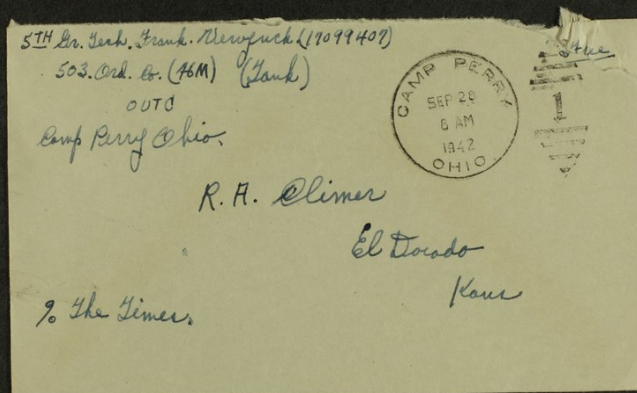 5TH Gr. Tech. Frank. (17099407)
503. Ord. Co. (H6M) (Tank)
OUTC
Camp Perry Ohio.
Free
CAMP PERRY
SEP 28
8 AM
1942
OHIO.
1
R. A. Climer
El Dorado
Kans
% The Times.